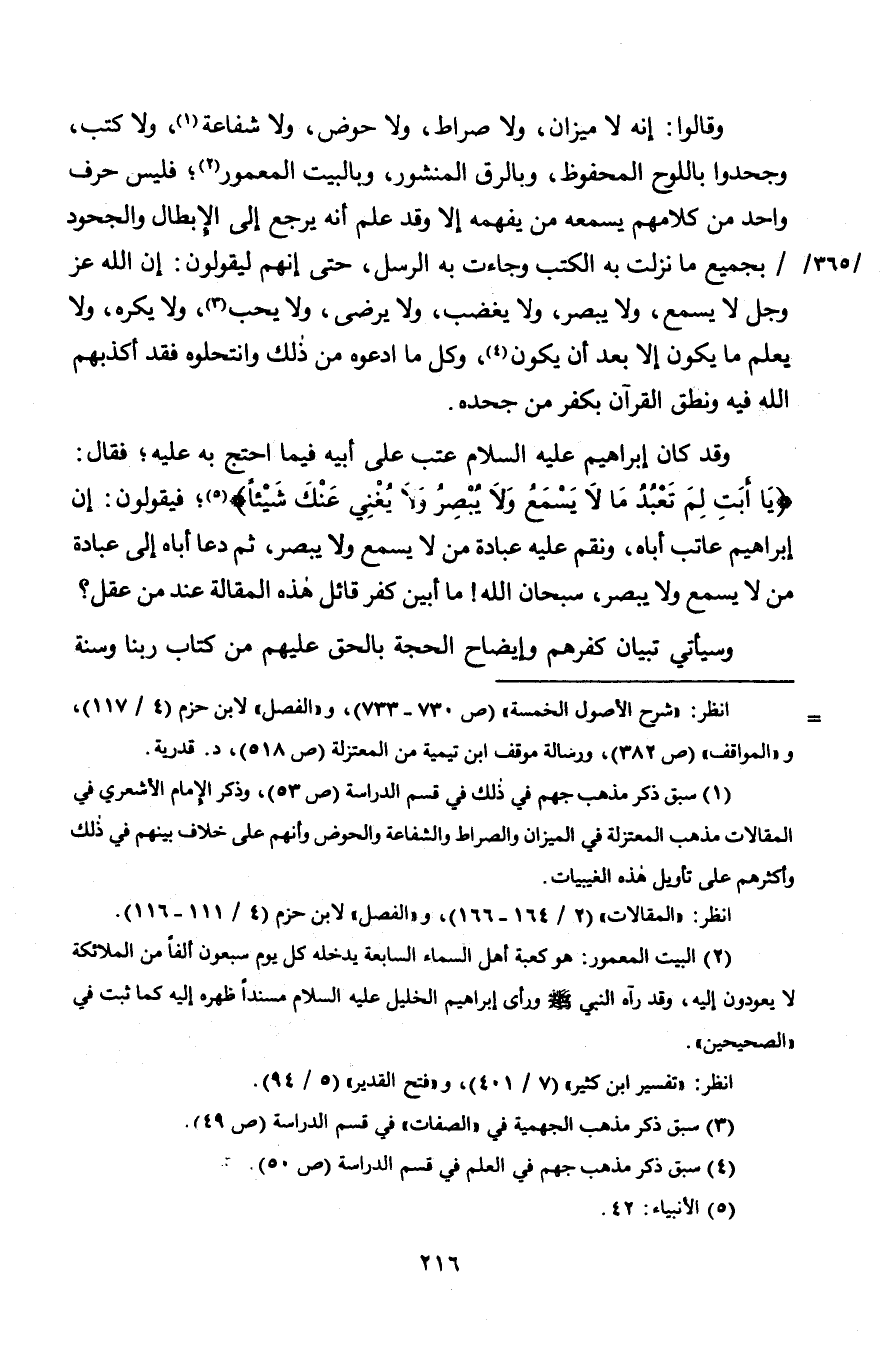 وقالوا: إنه لا ميزان، ولا صراط، ولا حوض، ولا شفاعة(١)، ولا كتب،
وجحدوا باللوح المحفوظ، وبالرق المنشور، وبالبيت المعمور(٢)؛ فليس حرف
واحد من كلامهم يسمعه من يفهمه إلا وقد علم أنه يرجع إلى الإبطال والجحود
/٣٦٥/ / بجميع ما نزلت به الكتب وجاءت به الرسل، حتى إنهم ليقولون: إن الله عز
وجل لا يسمع، ولا يبصر، ولا يغضب، ولا يرضى، ولا يحب(٣)، ولا يكره، ولا
يعلم ما يكون إلا بعد أن يكون(٤)، وكل ما ادعوه من ذٰلك وانتحلوه فقد أكذبهم
الله فيه ونطق القرآن بكفر من جحده.
وقد كان إبراهيم عليه السلام عتب على أبيه فيما احتج به عليه؛ فقال:
﴿يَا أَبَتِ لِمَ تَعْبُدُ مَا لَا يَسْمَعُ وَلَا يُبْصِرُ وَلَا يُغْنِي عَنْكَ شَيْئاً﴾(٥)؛ فيقولون: إن
إبراهيم عاتب أباه، ونقم عليه عبادة من لا يسمع ولا يبصر، ثم دعا أباه إلى عبادة
من لا يسمع ولا يبصر، سبحان الله! ما أبين كفر قائل هٰذه المقالة عند من عقل؟
وسيأتي تبيان كفرهم وإيضاح الحجة بالحق عليهم من كتاب ربنا وسنة
= انظر: «شرح الأصول الخمسة» (ص ٧٣٠ ـ ٧٣٣)، و«الفصل» لابن حزم (٤ / ١١٧)،
و«المواقف» (ص ٣٨٢)، ورسالة موقف ابن تيمية من المعتزلة (ص ٥١٨)، د. قدرية.
(١) سبق ذكر مذهب جهم في ذٰلك في قسم الدراسة (ص ٥٣)، وذكر الإمام الأشعري في
المقالات مذهب المعتزلة في الميزان والصراط والشفاعة والحوض وأنهم على خلاف بينهم في ذٰلك
وأكثرهم على تأويل هٰذه الغيبيات.
انظر: «المقالات» (٢ / ١٦٤ ـ ١٦٦)، و«الفصل» لابن حزم (٤ / ١١١ ـ ١١٦).
(٢) البيت المعمور: هو كعبة أهل السماء السابعة يدخله كل يوم سبعون ألفاً من الملائكة
لا يعودون إليه، وقد رآه النبي ﷺ ورأى إبراهيم الخليل عليه السلام مسنداً ظهره إليه كما ثبت في
«الصحيحين».
انظر: «تفسير ابن كثير» (٧ / ٤٠١)، و«فتح القدير» (٥ / ٩٤).
(٣) سبق ذكر مذهب الجهمية في «الصفات» في قسم الدراسة (ص ٤٩).
(٤) سبق ذكر مذهب جهم في العلم في قسم الدراسة (ص ٥٠).
(٥) الأنبياء: ٤٢.
٢١٦